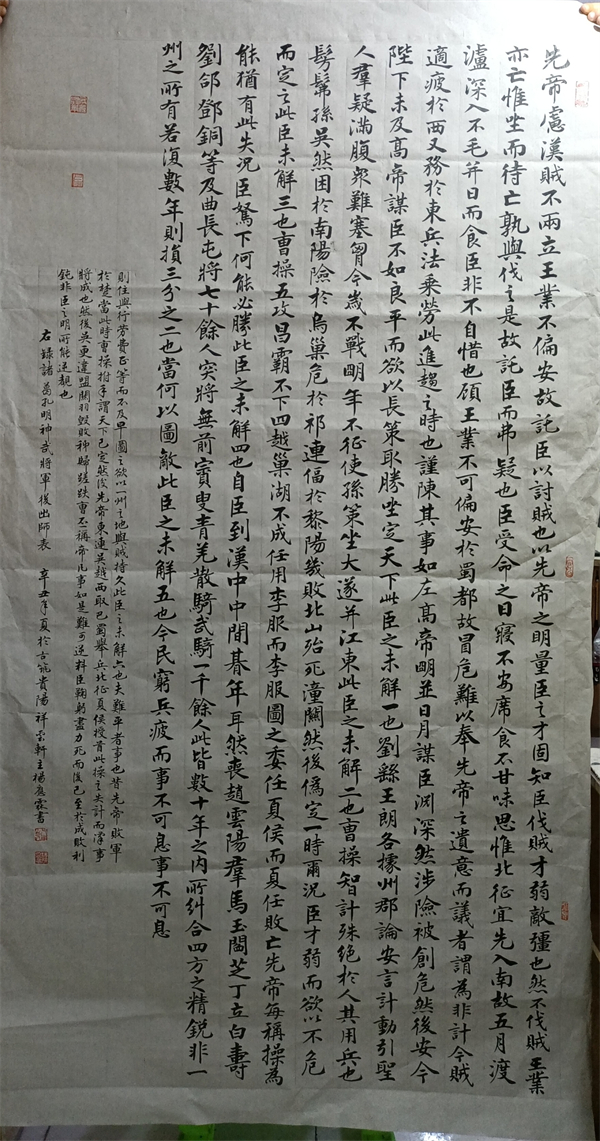 先帝慮漢賊不兩立王業不偏安故託臣以討賊也以先帝之明量臣之才固知臣伐賊才弱敵彊也然不伐賊王業
亦亡惟坐而待亡孰與伐之是故託臣而弗疑也臣受命之日寢不安席食不甘味思惟北征宜先入南故五月渡
瀘深入不毛并日而食臣非不自惜也顧王業不可偏安於蜀都故冒危難以奉先帝之遺意而議者謂為非計今賊
適疲於西又務於東兵法乘勞此進趨之時也謹陳其事如左高帝明並日月謀臣淵深然涉險被創危然後安今
陛下未及高帝謀臣不如良平而欲以長策取勝坐定天下此臣之未解一也劉繇王朗各據州郡論安言計動引聖
人羣疑滿腹眾難塞胷今歲不戰明年不征使孫策坐大遂并江東此臣之未解二也曹操智計殊絕於人其用兵也
髣髴孫吳然困於南陽險於烏巢危於祁連偪於黎陽幾敗北山殆死潼關然後偽定一時爾況臣才弱而欲以不危
而定之此臣未解三也曹操五攻昌霸不下四越巢湖不成任用李服而李服圖之委任夏侯而夏任敗亡先帝每稱操為
能猶有此失況臣駑下何能必勝此臣之未解四也自臣到漢中中間朞年耳然喪趙雲陽羣馬玉閻芝丁立白壽
劉郃鄧銅等及曲長屯將七十餘人突將無前賨叟青羌散騎武騎一千餘人此皆數十年之内所糾合四方之精銳非一
州之所有若復數年則損三分之二也當何以圖敵此臣之未解五也今民窮兵疲而事不可息事不可息
則住與行勞費正等而不及早圖之欲以一州之地與賊持久此臣之未解六也夫難平者事也昔先帝敗軍
於楚當此時曹操拊手謂天下已定然後先帝東連吳越西取巴蜀舉兵北征夏侯授首此操之失計而漢事
將成也然後吳更違盟關羽毀敗秭歸蹉跌曹丕稱帝凡事如是難可逆料臣鞠躬盡力死而後已至於成敗利
鈍非臣之明所能逆覩也
右錄諸葛孔明神武將軍後出師表 辛丑年夏於古筑貴陽祥雲軒主楊應霖書